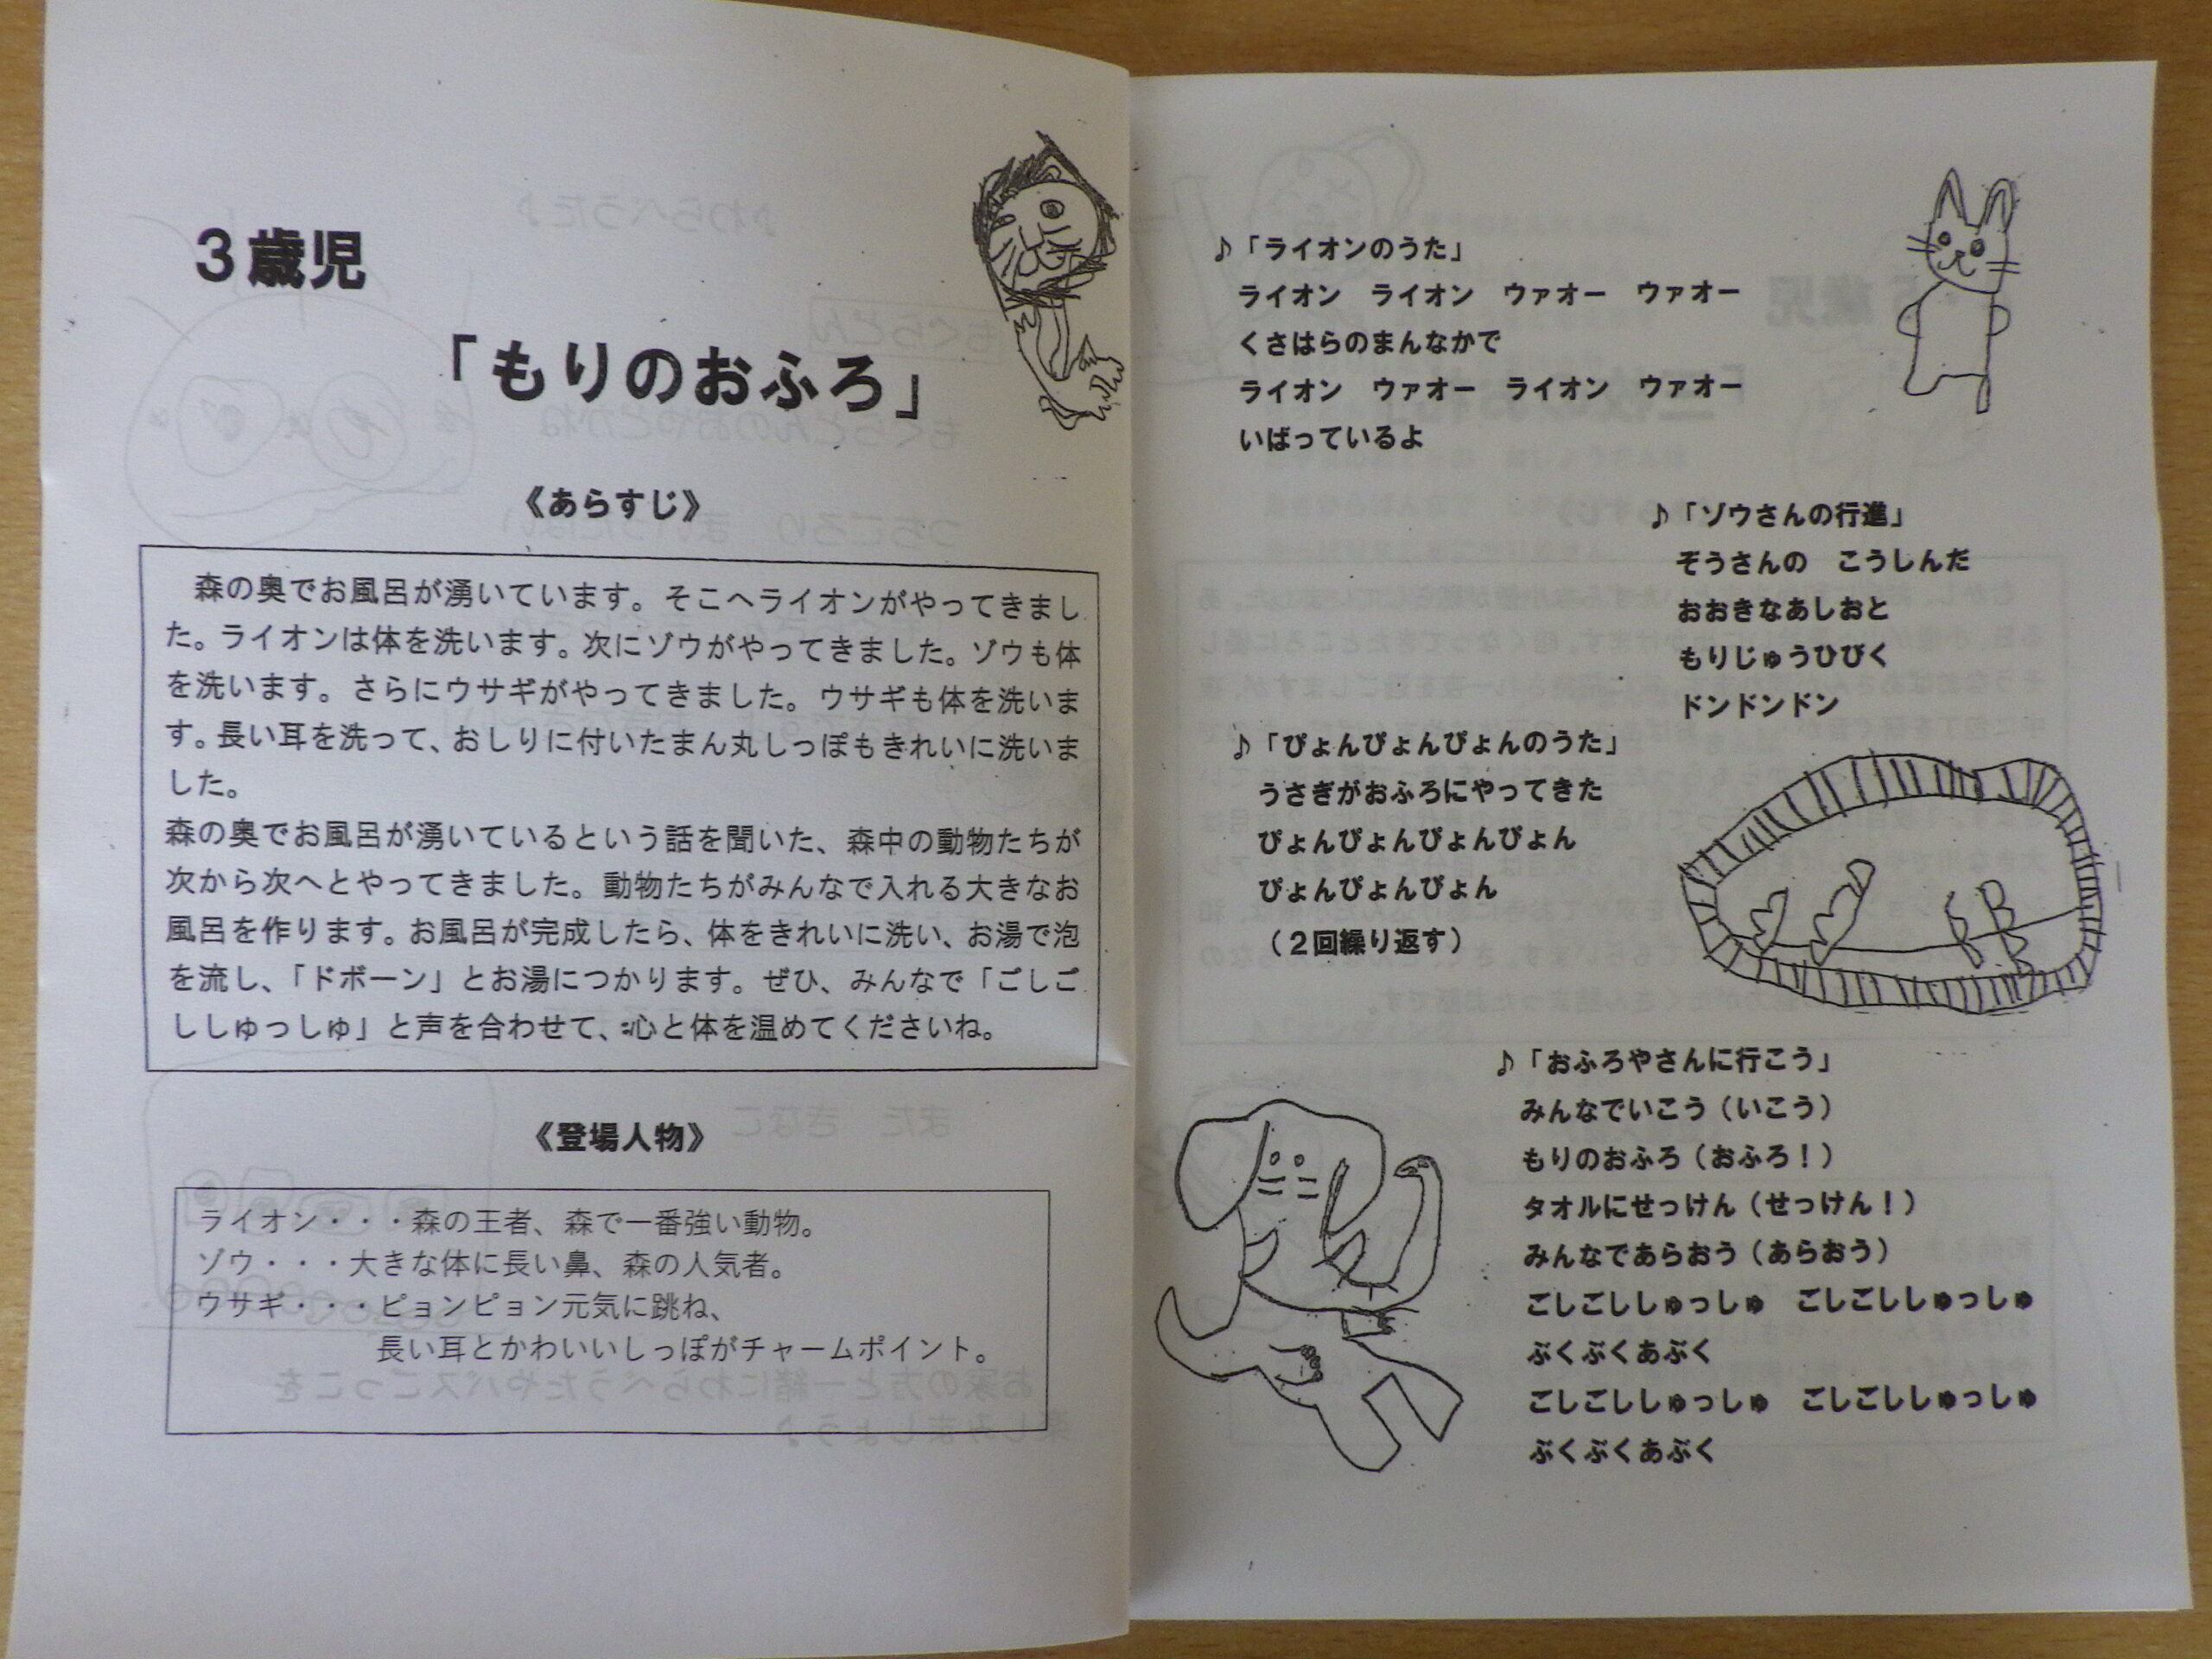 3歳児
「もりのおふろ」
《あらすじ》
森の奥でお風呂が湧いています。そこへライオンがやってきまし
た。ライオンは体を洗います。次にゾウがやってきました。ゾウも体
を洗います。さらにウサギがやってきました。ウサギも体を洗いま
す。長い耳を洗って、おしりに付いたまん丸しっぽもきれいに洗いま
した。
森の奥でお風呂が湧いているという話を聞いた、森中の動物たちが
次から次へとやってきました。動物たちがみんなで入れる大きなお
風呂を作ります。お風呂が完成したら、体をきれいに洗い、お湯で泡
を流し、「ドボーン」とお湯につかります。ぜひ、みんなで「ごしご
ししゅっしゅ」と声を合わせて、心と体を温めてくださいね。
《登場人物》
ライオン・・・森の王者、森で一番強い動物。
ゾウ・・・大きな体に長い鼻、森の人気者。
ウサギ・・・ピョンピョン元気に跳ね、
長い耳とかわいいしっぽがチャームポイント。
♪「ライオンのうた」
ライオン　ライオン　ウァオー　ウァオー
くさはらのまんなかで
ライオン　ウァオー　ライオン　ウァオー
いばっているよ
♪「ゾウさんの行進」
ぞうさんの　こうしんだ
おおきなあしおと
もりじゅうひびく
ドンドンドン
♪「ぴょんぴょんぴょんのうた」
うさぎがおふろにやってきた
ぴょんぴょんぴょんぴょん
ぴょんぴょんぴょん
（2回繰り返す）
♪「おふろやさんに行こう」
みんなでいこう（いこう）
もりのおふろ（おふろ！）
タオルにせっけん（せっけん！）
みんなであらおう（あらおう）
ごしごししゅっしゅ　ごしごししゅっしゅ
ぶくぶくあぶく
ごしごししゅっしゅ　ごしごししゅっしゅ
ぶくぶくあぶく